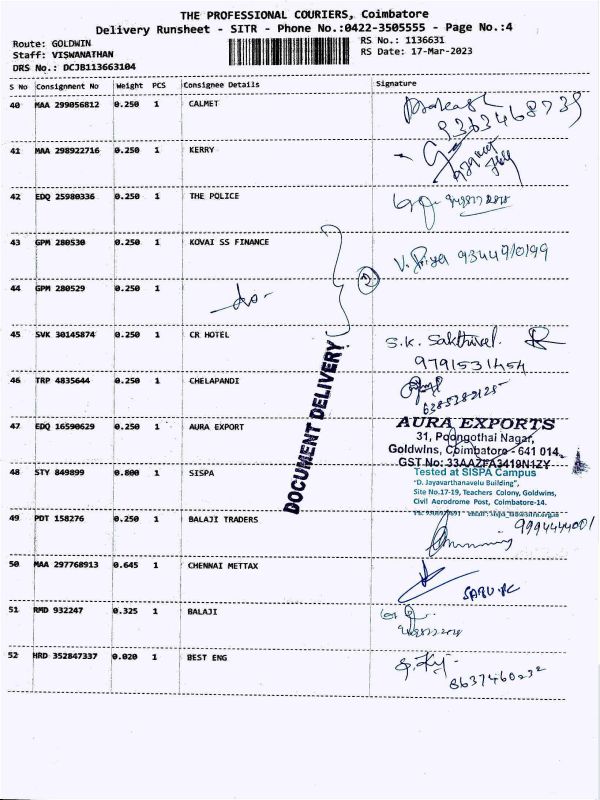 THE PROFESSIONAL COURIERS, Coimbatore
Delivery Runsheet - SITR - Phone No.:0422-3505555 - Page No.:4
Route: GOLDWIN RS No.: 1136631
Staff: VISWANATHAN RS Date: 17-Mar-2023
DRS No.: DCJB113663104
S No Consignment No Weight PCS Consignee Details Signature
40 MAA 299056812 0.250 1 CALMET
9363468739
41 MAA 298922716 0.250 1 KERRY
42 EDQ 25980336 0.250 1 THE POLICE
43 GPM 280530 0.250 1 KOVAI SS FINANCE V. Priya 9344910199
2
44 GPM 280529 0.250 1 -do-
45 SVK 30145874 0.250 1 CR HOTEL S.K. Sakthivel.
9791531454
46 TRP 4835644 0.250 1 CHELAPANDI
6385282125
DOCUMENT DELIVERY
47 EDQ 16590629 0.250 1 AURA EXPORT AURA EXPORTS
31, Poongothai Nagar,
Goldwins, Coimbatore - 641 014.
GST No: 33AAZFA3419N1ZY
48 STY 849899 0.800 1 SISPA Tested at SISPA Campus
"D. Jayavarthanavelu Building",
Site No.17-19, Teachers Colony, Goldwins,
Civil Aerodrome Post, Coimbatore-14.
49 PDT 158276 0.250 1 BALAJI TRADERS 9994444001
50 MAA 297768913 0.645 1 CHENNAI METTAX
51 RMD 932247 0.325 1 BALAJI
52 HRD 352847337 0.020 1 BEST ENG
8637460232